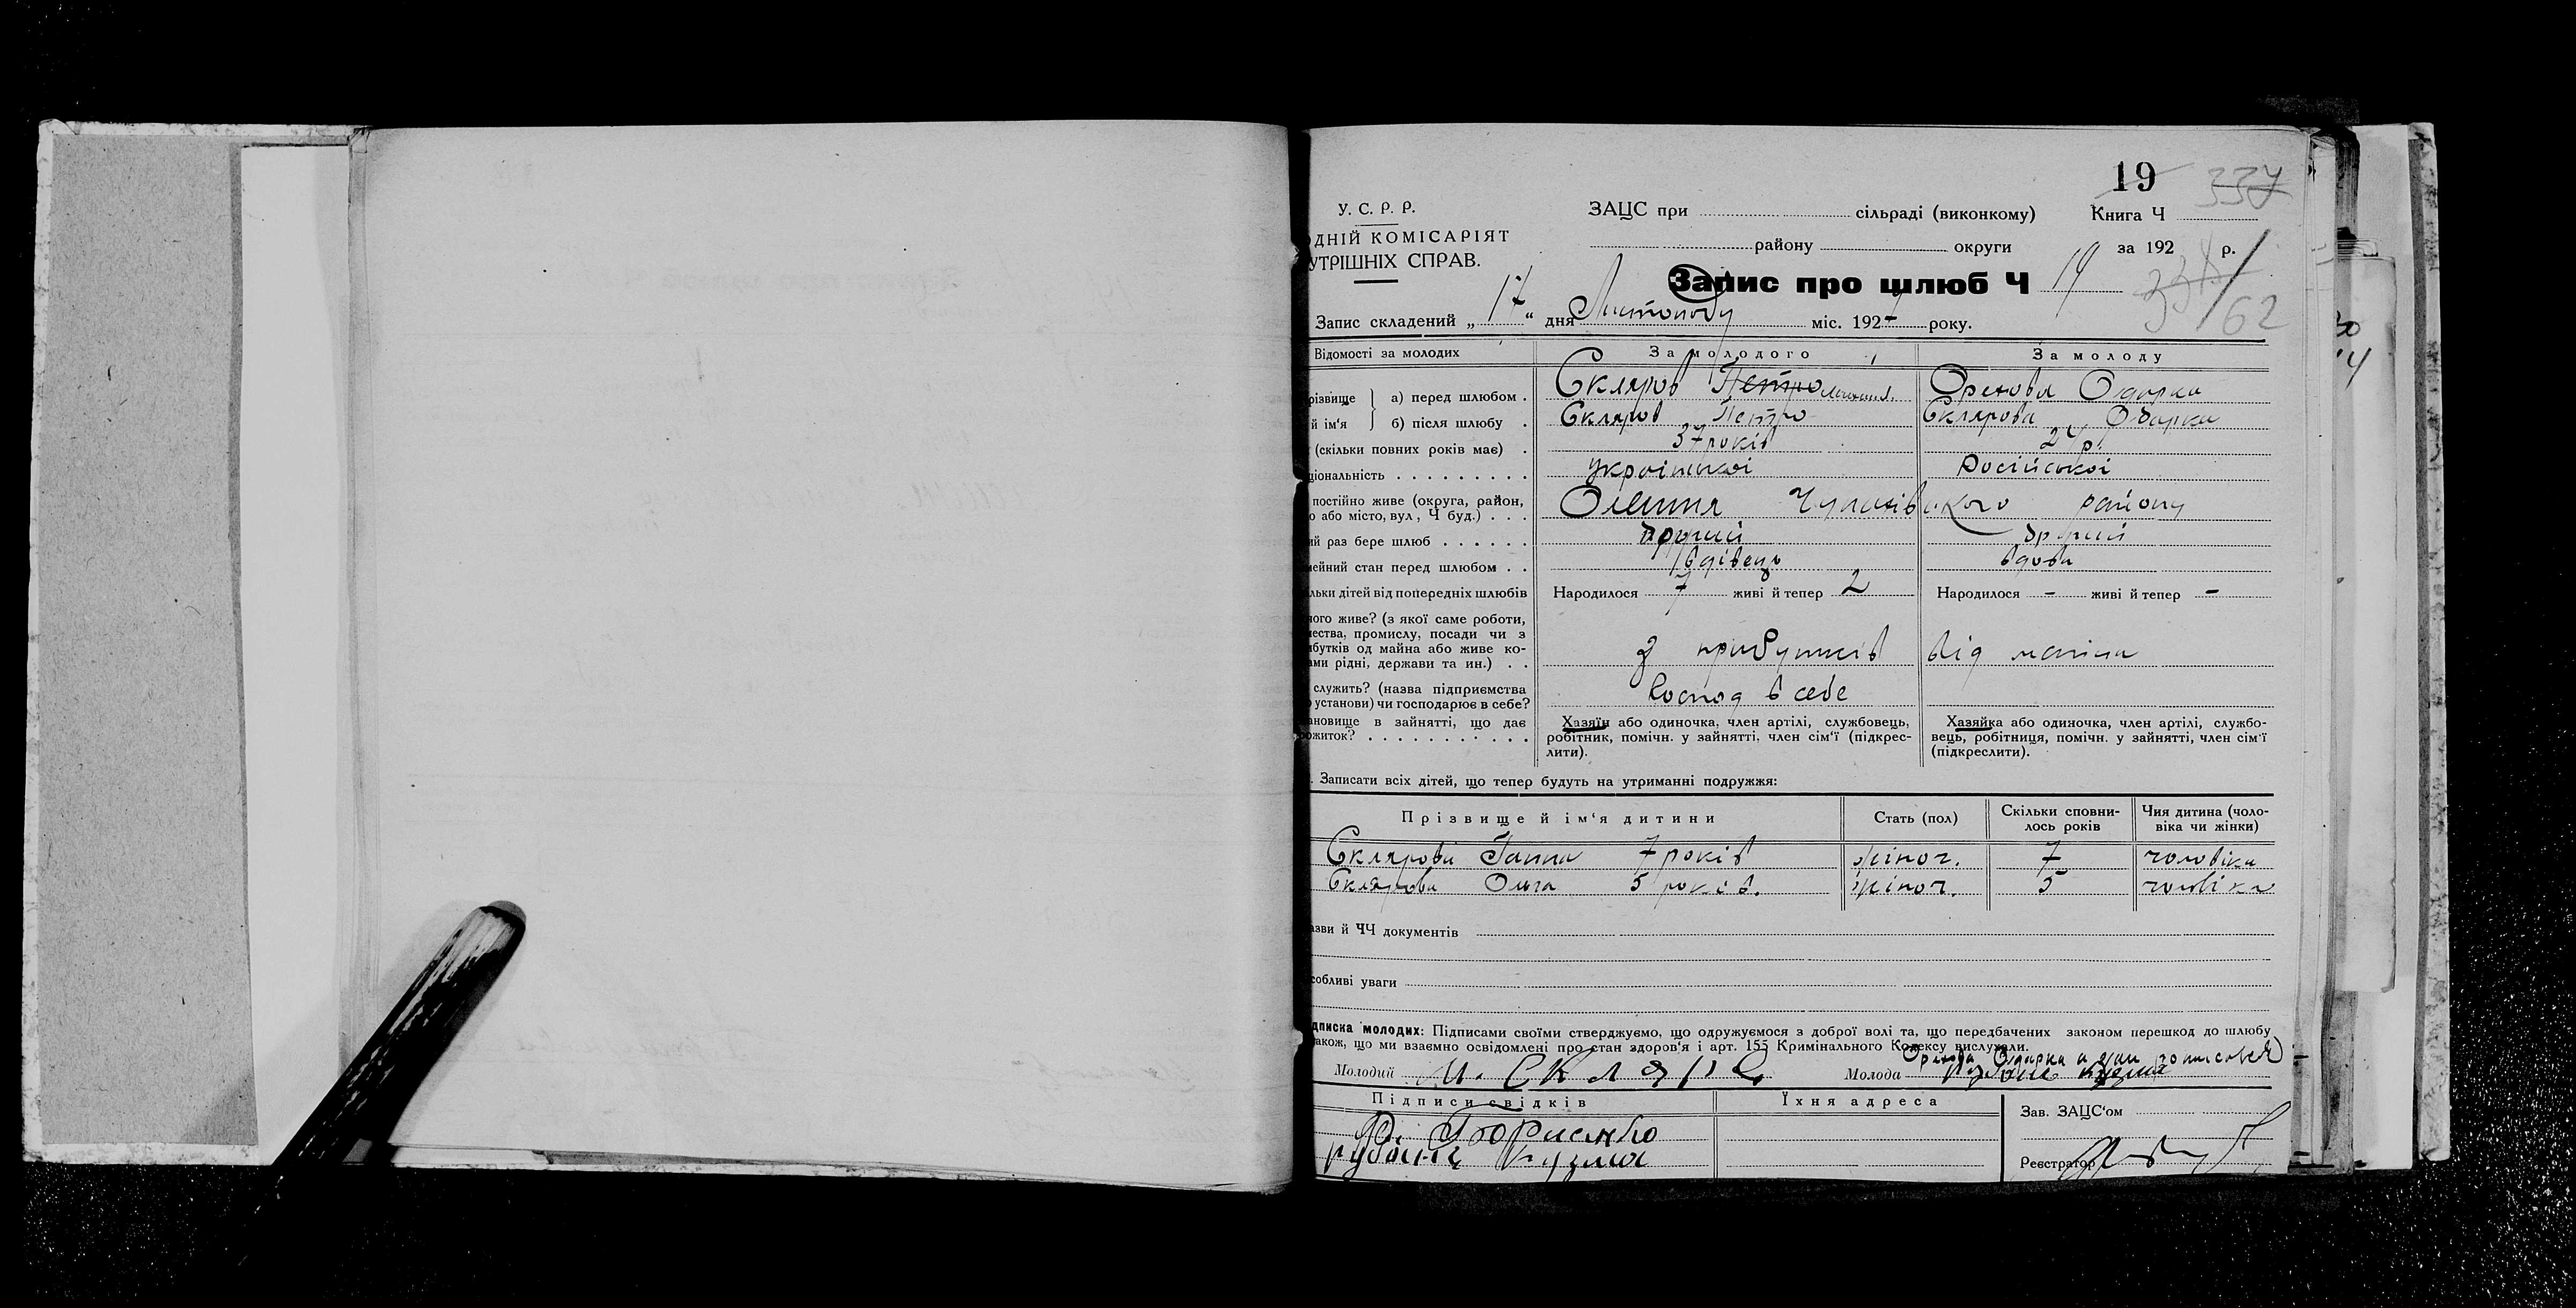 19 337
У. С. Р. Р.
ЗАЦС при сільраді (виконкому) Книга Ч
ОДНІЙ КОМІСАРІЯТ
району округи за 192 р.
УТРІШНІХ СПРАВ.
Запис про шлюб Ч 19
62
Запис складений „ 17 “ дня Листопаду міс. 1927 року.
Відомості за молодих За молодого За молоду
різвище а) перед шлюбом . Скляров Петро Орехова Одарка
й ім'я б) після шлюбу . Скляров Петро Склярова Одарка
(скільки повних років має) . 37 років 24 р.
ціональність . . . . . . . . . української Російської
постійно живе (округа, район,
о або місто, вул , Ч буд.) . . . Чупахівського району
ий раз бере шлюб . . . . . . другий другий
мейний стан перед шлюбом . . вдівець вдова
льки дітей від попередніх шлюбів Народилося 7 живі й тепер 2 Народилося - живі й тепер -
чого живе? (з якої саме роботи,
мества, промислу, посади чи з
ибутків од майна або живе ко-
ами рідні, держави та ин.) . . з прибутків від маина
служить? (назва підприємства
установи) чи господарює в себе? Господ в себе
ановище в зайнятті, що дає
ожиток? . . . . . . . . . . .
Хазяїн або одиночка, член артілі, службовець,
робітник, помічн. у зайнятті, член сім'ї (підкрес-
лити).
Хазяйка або одиночка, член артілі, службо-
вець, робітниця, помічн. у зайнятті, член сім'ї
(підкреслити).
. Записати всіх дітей, що тепер будуть на утриманні подружжя:
Прізвище й ім'я дитини Стать (пол) Скільки сповни-
лось років Чия дитина (чоло-
віка чи жінки)
Склярова Ганна 7 років жіноч. 7 чоловіка
Склярова Ольга 5 років. жіноч. 5 чоловіка
азви й ЧЧ документів
собливі уваги
дписка молодих: Підписами своїми стверджуємо, що одружуємося з доброї волі та, що передбачених законом перешкод до шлюбу
акож, що ми взаємно освідомлені про стан здоров'я і арт. 155 Кримінального Кодексу вислухали.
Одарка а
Молодий М. Скляро Молода
Підписи свідків Їхня адреса
Зав. ЗАЦС'ом
Борисенко
Кузма
Реєстратор